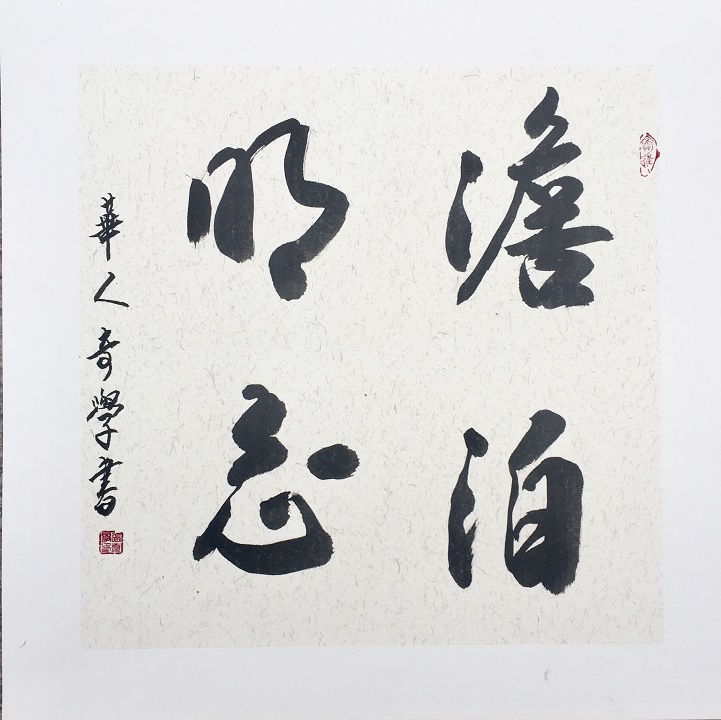 澹泊
明志
華人奇學書